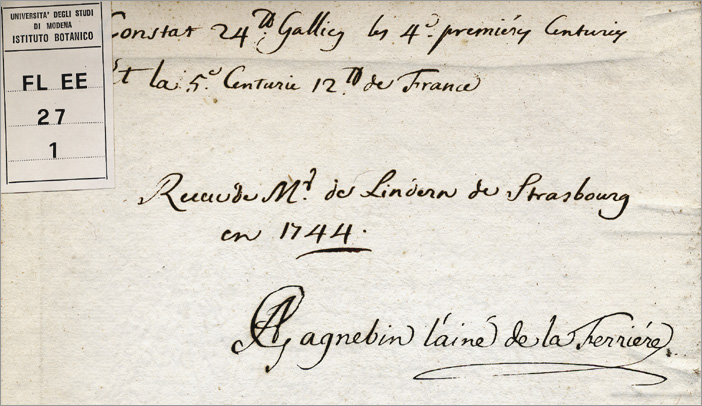 UNIVERSITA' DEGLI STUDI
DI MODENA
ISTITUTO BOTANICO
FL EE
27
1
Constat 24 tt Gallicy les 4e. premiéres Centuries
Et la 5e. Centurie 12. tt de France
Recue de Mr. de Lindern de Strasbourg
en 1744.
AGagnebin l'áiné de la Ferriére